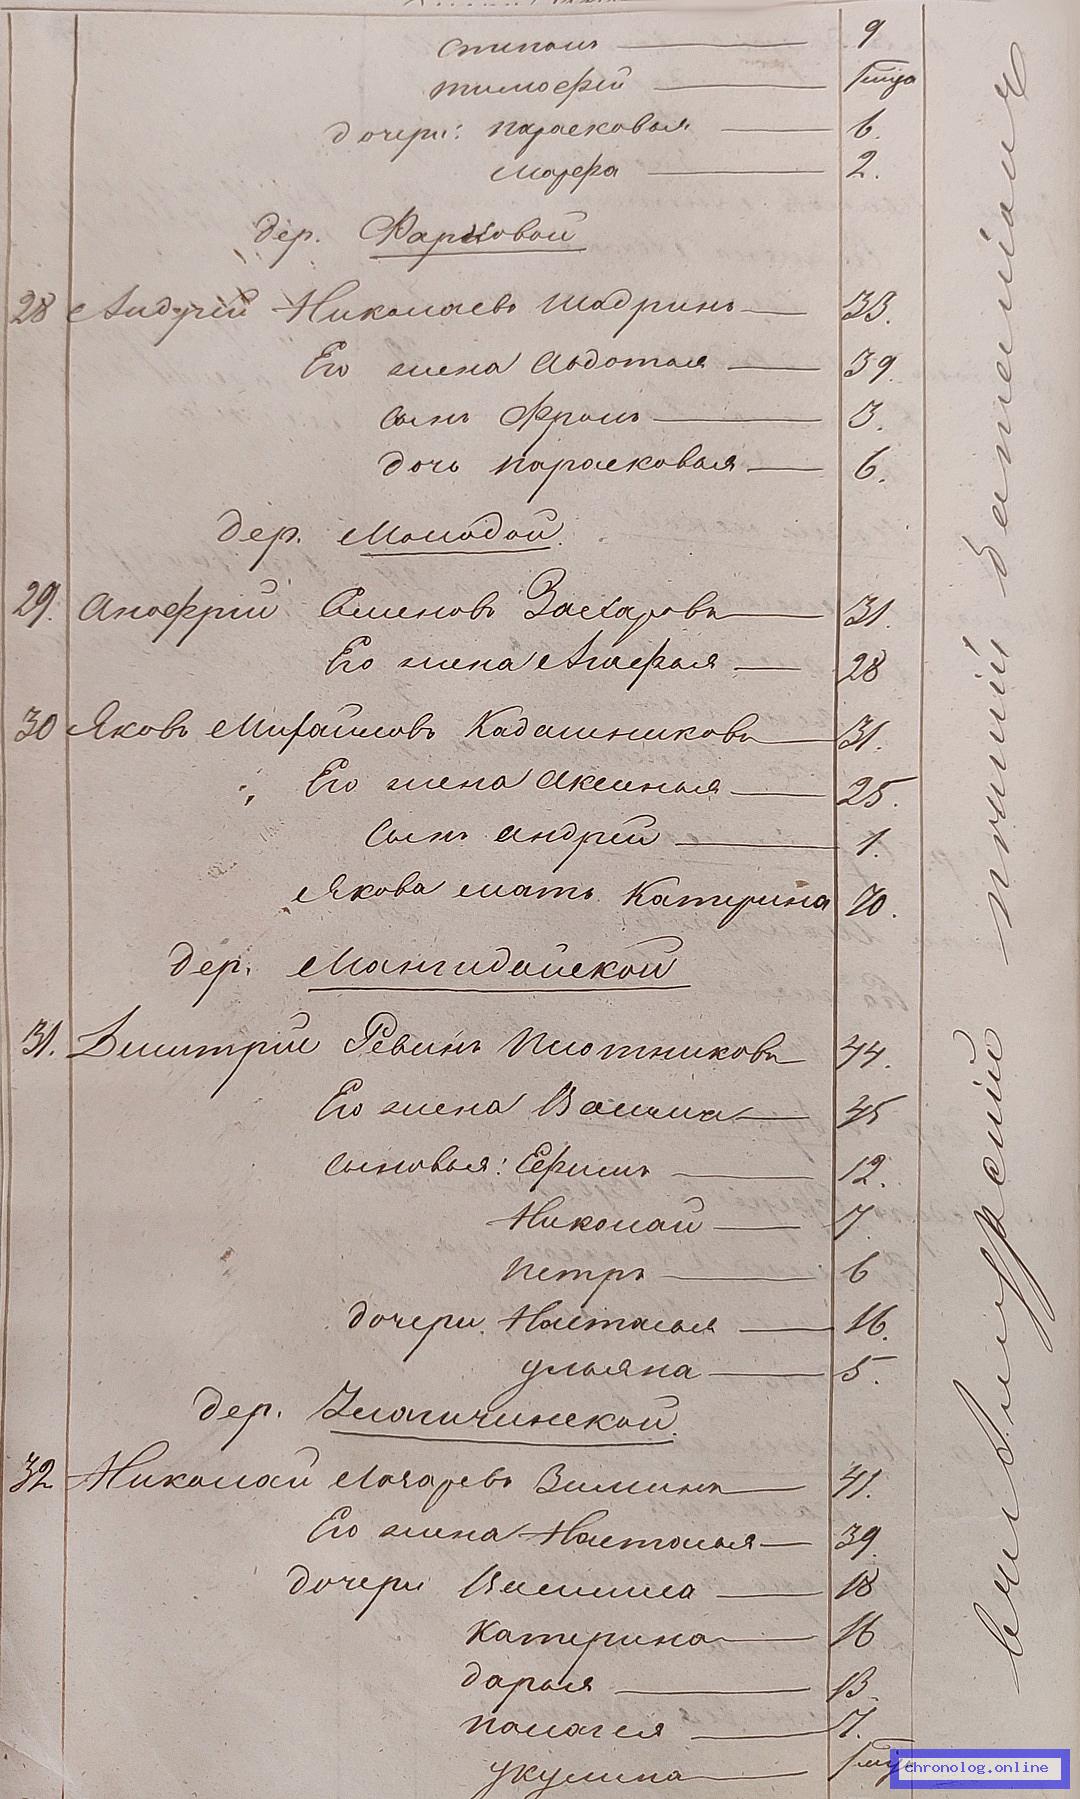 степанъ 9
тимофей 1/2 года
дочери: парасковья 6.
марфа 2.
дер. Фарковой
28 Андрей Николаевъ шадринъ 33.
Его жена Авдотья 39.
сынъ Фролъ 3.
дочь парасковья 6.
дер. Молодой.
29. Анофрiй Семеновъ Захаровъ 31.
Его жена Агафья 28
30 Яковъ Михайловъ Кадашниковъ 31.
Его жена Аксинья 25.
Сынъ андрей 1.
Якова мать Катерина 70.
дер. Мангидайской
31. Дмитрiй Плотниковъ 44.
Его жена 45
сыновья: Ефимъ 12.
Николай 7.
петръ 6
дочери. Насталья 16.
ульяна 5.
дер.
32 Николай Зиминъ 41.
Его жена Насталья 39.
дочери 18
катерина 16
дарья 13.
палагея 7.
укулина
chronolog.online